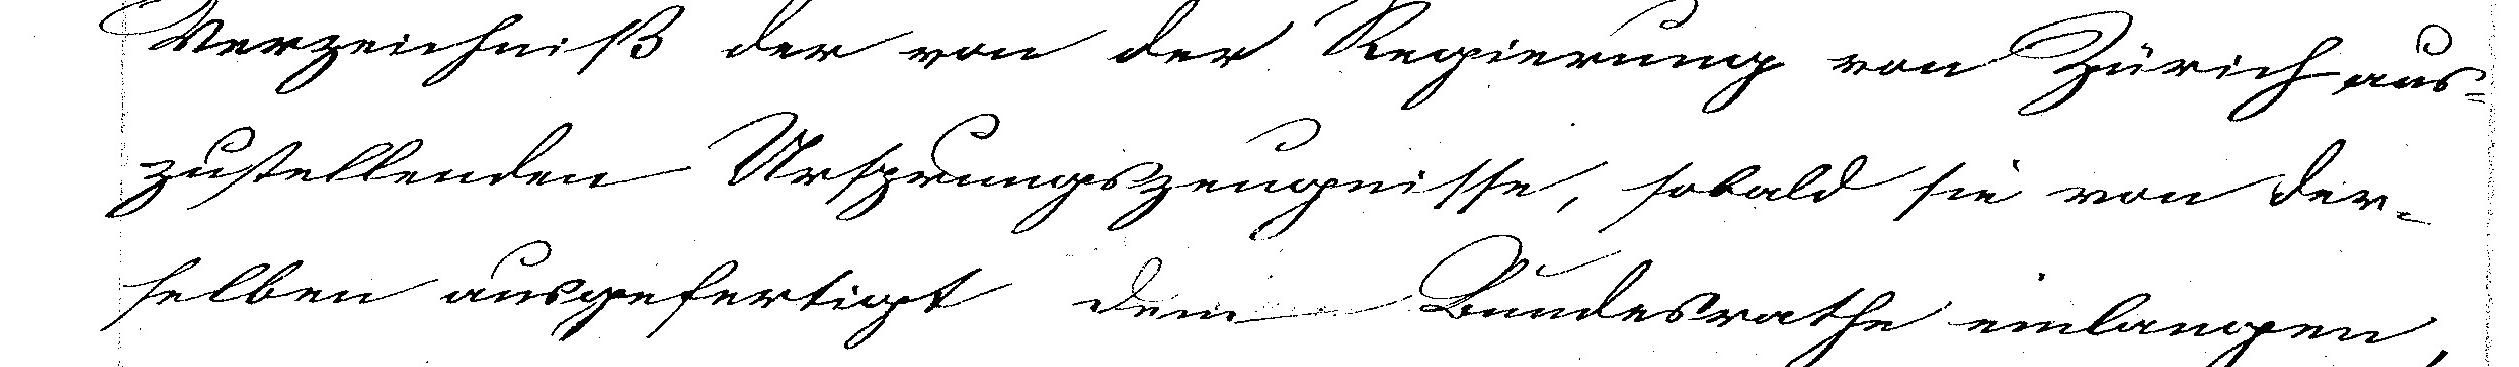 Verzeichniß der von der Regierung von Zürich aus-
zustellenden Ursprungszeugnisse, sobald sie von der-
selben ausgefertigt dem Bundesrathe einlangen,